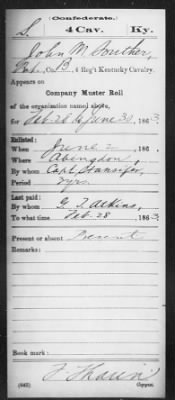 (Confederate.)
S. 4 Cav. Ky.
John W. Souther,
Co. B, 4 Reg't Kentucky Cavalry.
Appears on
Company Muster Roll
of the organization named above,
for Feb 28 to June 30, 1863.
Enlisted:
When June 2, 186 .
Where Abingdon
By whom Capt. Stansifer
Period 3 yrs.
Last paid:
By whom G. T. Atkins,
To what time Feb. 28 1863
Present or absent Present
Remarks:
Book mark:
(642) Copyist.